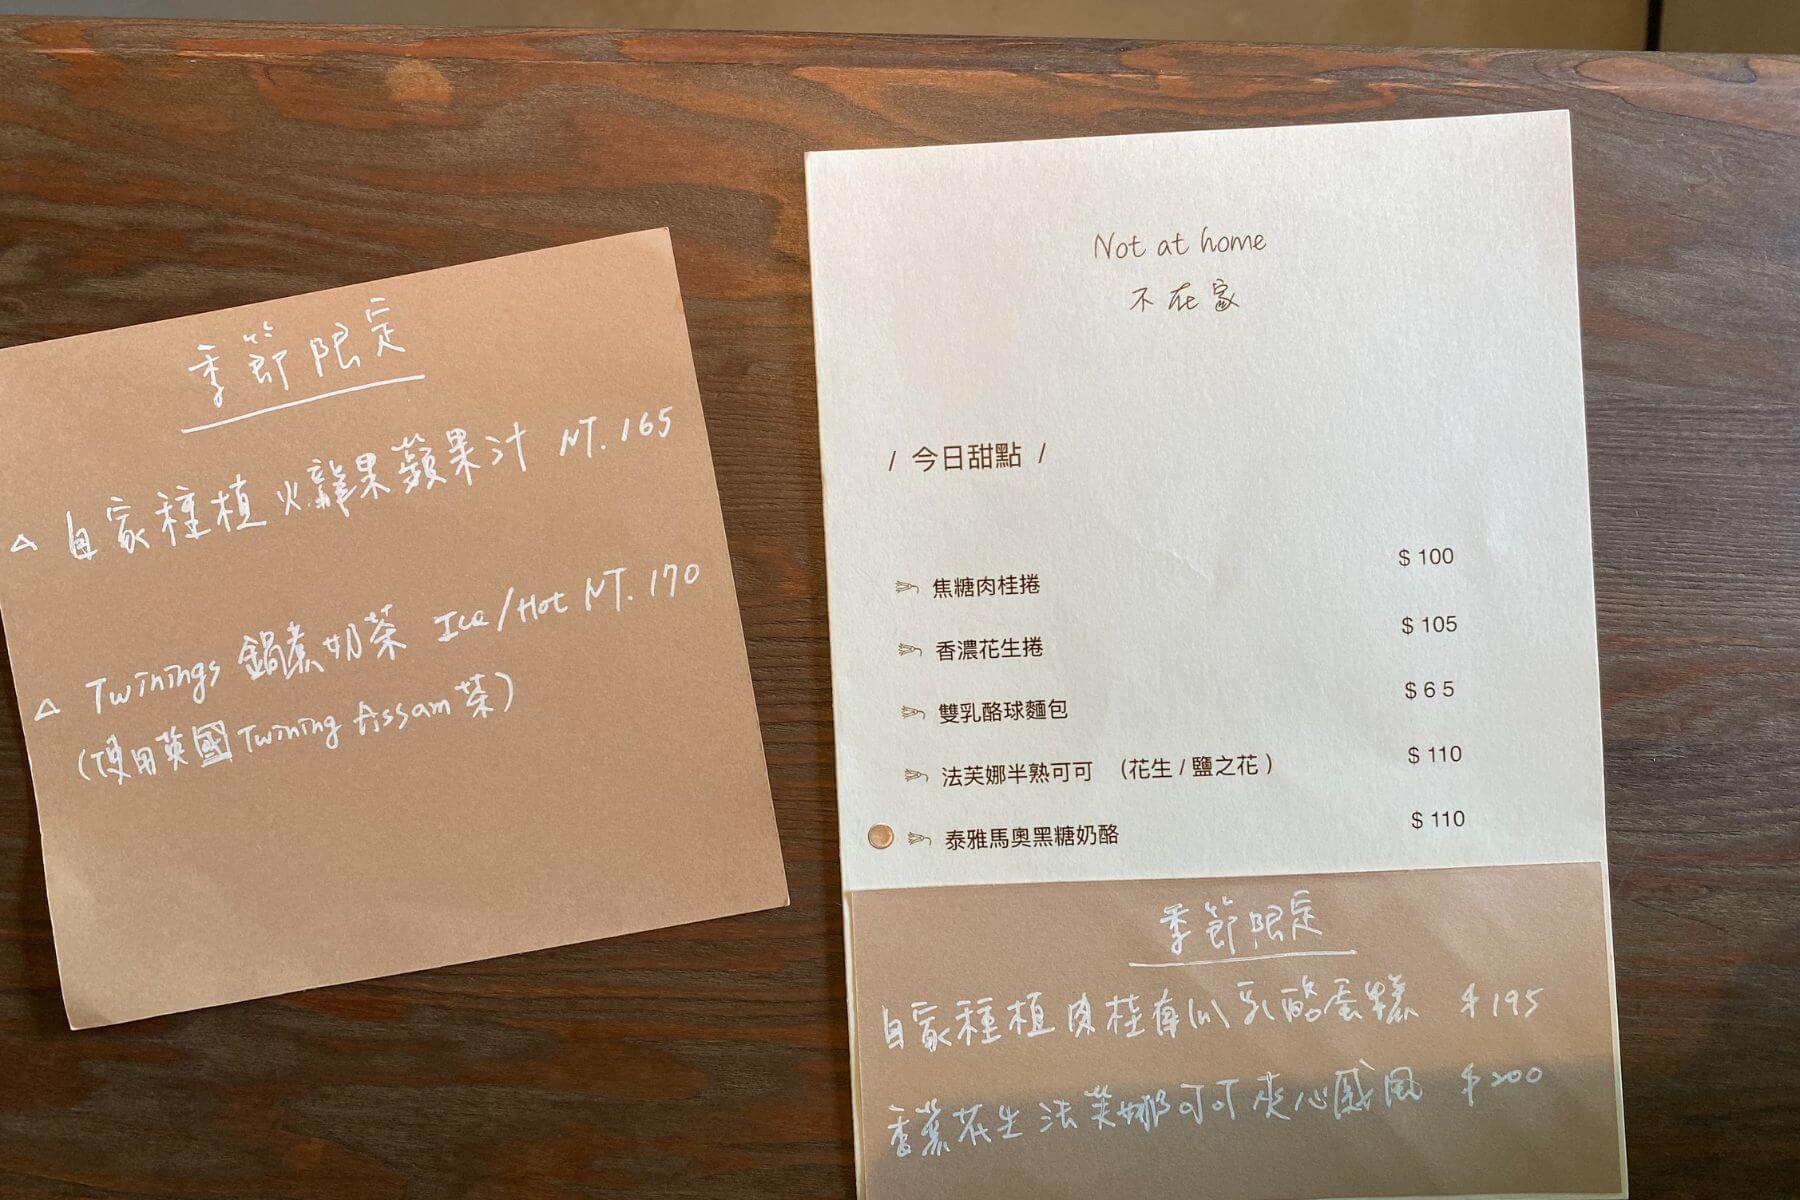 季節限定
△ 自家種植火龍果蘋果汁 NT. 165
△ Twinings 鍋煮奶茶 Ice/Hot NT. 170
(使用英國 Twining Assam 茶)
Not at home
不在家
/ 今日甜點 /
焦糖肉桂捲 $ 100
香濃花生捲 $ 105
雙乳酪球麵包 $ 6 5
法芙娜半熟可可 (花生 / 鹽之花) $ 110
泰雅馬奧黑糖奶酪 $ 110
季節限定
自家種植肉桂南瓜乳酪蛋糕 $ 195
香蕉花生法芙娜可可夾心戚風 $ 200